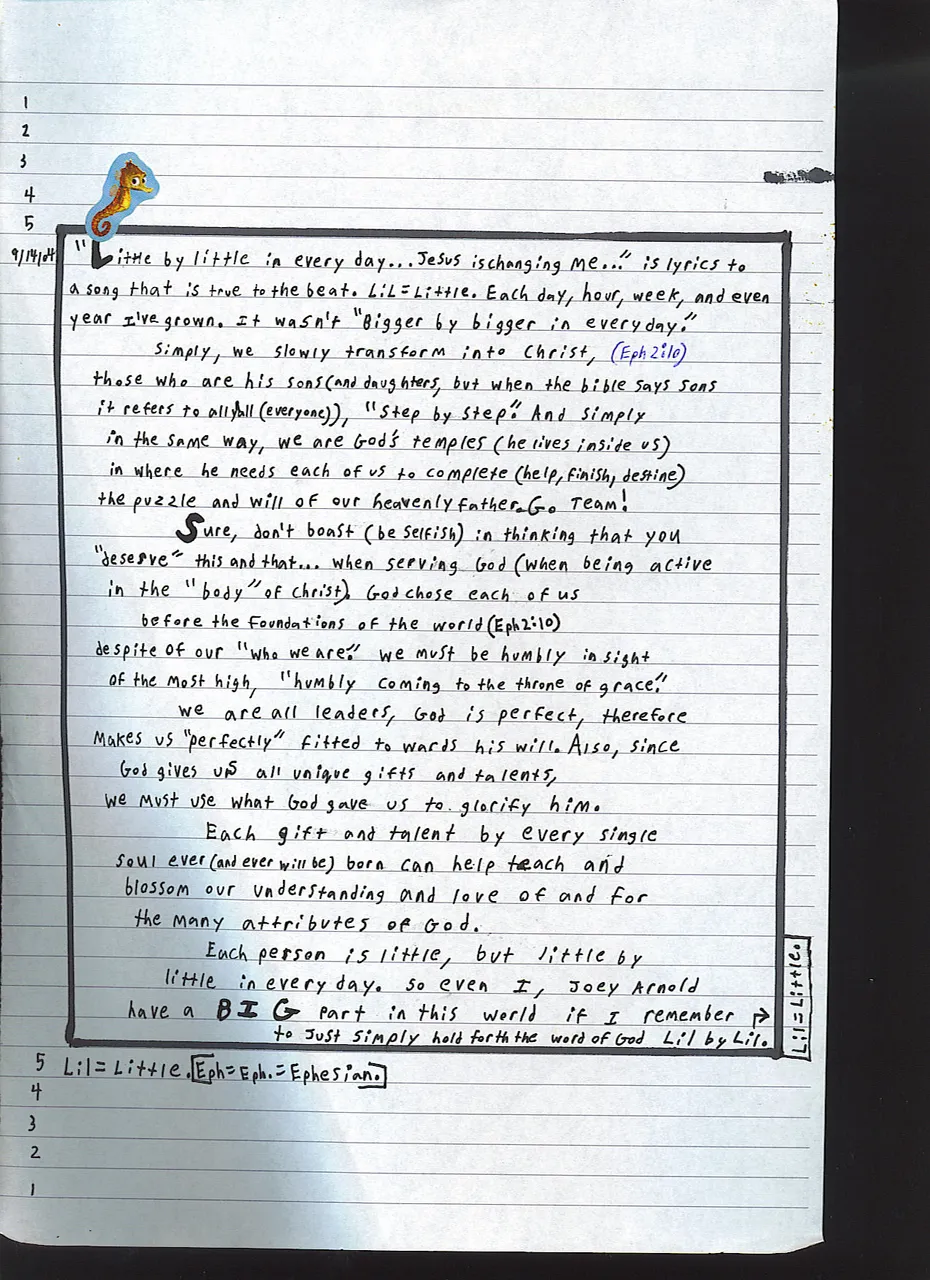 1
2
3
4
5
9/14/04 "Little by little in every day... Jesus is changing me..." is lyrics to
a song that is true to the beat. LiL=Little. Each day, hour, week, and even
year I've grown. It wasn't "Bigger by bigger in everyday."
Simply, we slowly transform into Christ, (Eph 2:10)
those who are his sons (and daughters, but when the bible says sons
it refers to all, all (everyone)), "Step by Step". And simply
in the same way, we are God's temples (he lives inside us)
in where he needs each of us to complete (help, finish, destine)
the puzzle and will of our heavenly father. Go Team!
Sure, don't boast (be selfish) in thinking that you
"deserve" this and that... when serving God (when being active
in the "body" of Christ). God chose each of us
before the foundations of the world (Eph 2:10)
despite of our "who we are." we must be humbly in sight
of the most high, "humbly coming to the throne of grace."
we are all leaders, God is perfect, therefore
makes us "perfectly" fitted to wards his will. Also, since
God gives us all unique gifts and talents,
we must use what God gave us to glorify him.
Each gift and talent by every single
soul ever (and ever will be) born can help teach and
blossom our understanding and love of and for
the many attributes of God.
Each person is little, but little by
little in every day. so even I, Joey Arnold
have a BIG part in this world if I remember →
to just simply hold forth the word of God Lil by Lil.
Lil=Little.
5 Lil=Little. Eph=Eph.=Ephesian.
4
3
2
1